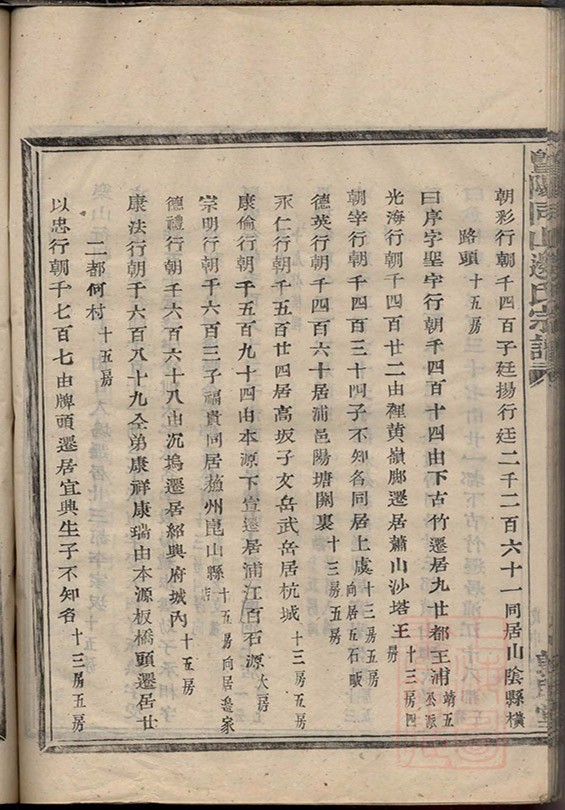 暨陽同山邊氏宗譜
朝彩行朝千四百子廷揚行廷二千二百六十一同居山陰縣橫
路頭 十五房
曰序字聖字行朝千四百十四由下古竹遷居九世都王浦 靖五公派
光海行朝千四百廿二由裡黃嶺脚遷居蕭山沙塔王 十三房四房
朝宰行朝千四百三十四子不知名同居上虞 十三房五房向居五石畈
德英行朝千四百六十居浦邑陽塘閣裏 十三房五房
永仁行朝千五百廿四居高坂子文岳武岳居杭城 十三房五房
康倫行朝千五百九十四由本源下宣遷居浦江百石源 大房
宗明行朝千六百三子福貴同居蘓州崑山縣 十五房向居邊家店
德禮行朝千六百六十八由沉塢遷居紹興府城內 十五房
康法行朝千六百八十九仝弟康祥康瑞由本源板橋頭遷居廿
二都何村 十五房
以忠行朝千七百七由牌頭遷居宜興生子不知名 十三房五房